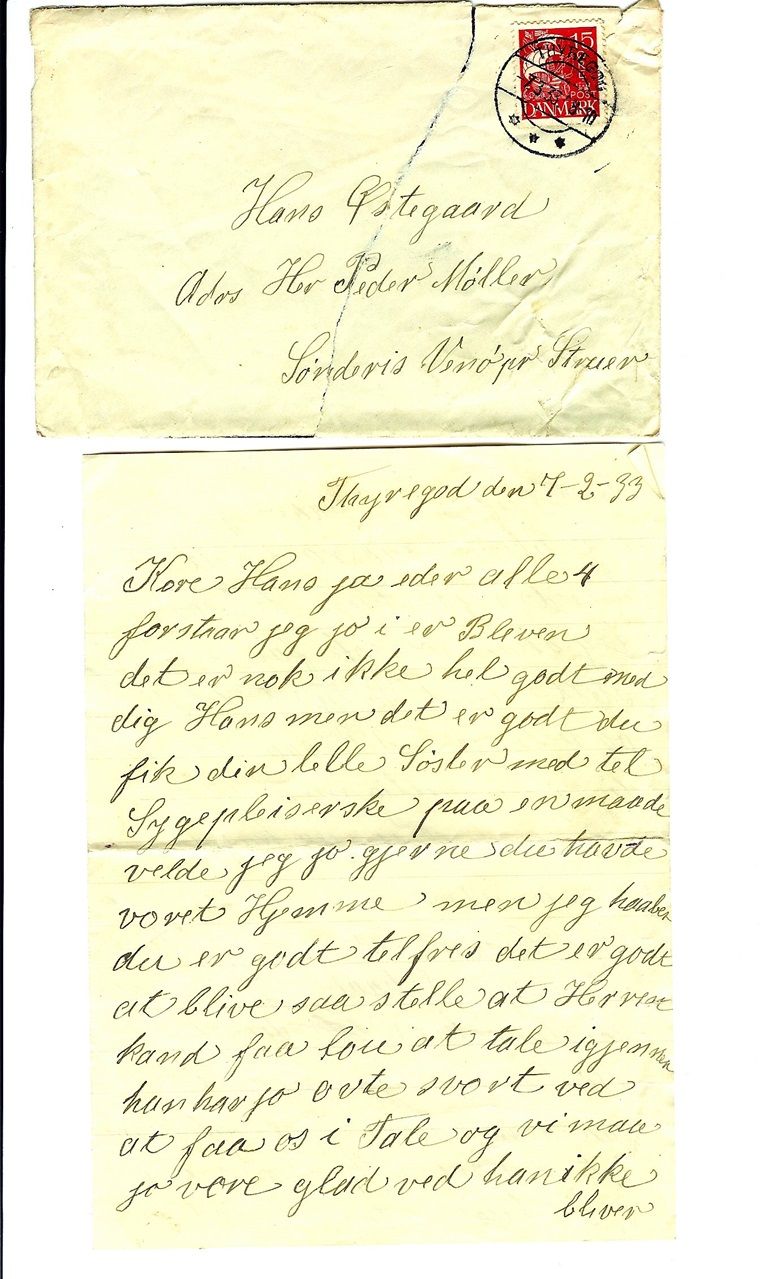 15
THYREGOD
POST
DANMARK
Hans Østegaard
Adrs Hr Peder Møller
Sønderis Venø pr Struer
Thyregod den 7-2-33
Kere Hans ja eder alle 4
forstaar jeg jo i er Bleven
det er nok ikke hel godt med
dig Hans men det er godt du
fik din lelle Søster med tel
Sygepleiserske paa en maade
velde jeg jo gjerne du havde
voret Hjemme men jeg haaber
du er godt telfres det er godt
at blive saa stelle at Herren
kand faa Lou at tale igjennem
han har jo ovte svort ved
at faa os i Tale og vi maa
jo vere glad ved han ikke
bliver